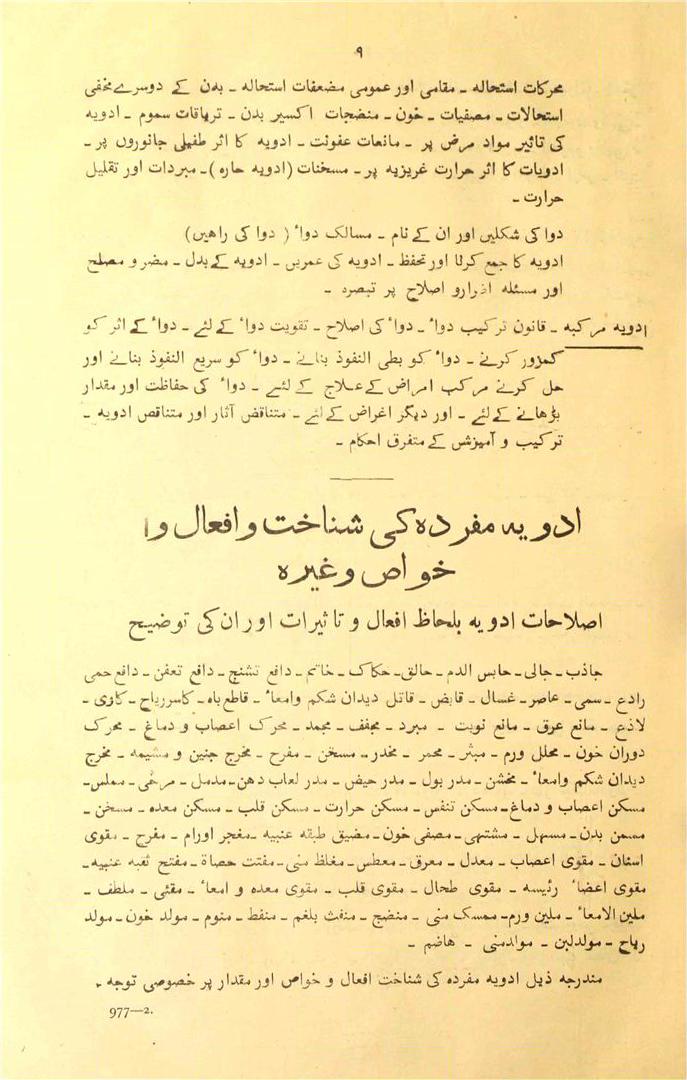 ۹
محرکات استحالہ ـ مقامی اور عمومی مضعفات استحالہ ـ بدن کے دوسرے مخفی
استحالات ـ مصفیات ـ خون ـ منضجات اکسیر بدن ـ تریاقات سموم ـ ادویہ
کی تاثیر مواد مرض پر ـ مانعات عفونت ـ ادویہ کا اثر طفیلی جانوروں پر ـ
ادویات کا اثر حرارت غریزیہ پر ـ مسخنات (ادویہ حارہ) ـ مبردات اور تقلیل
حرارت ـ
دوا کی شکلیں اور ان کے نام ـ مسالک دواٴ ( دوا کی راهیں)
ادویہ کا جمع کرنا اور تحفظ ـ ادویہ کی عمریں ـ ادویہ کے بدل ـ مضر و مصلح
اور مسئلہ اضرارو اصلاح پر تبصرہ ـ
ادویہ مرکبہ ـ قانون ترکیب دواٴ ـ دواٴ کی اصلاح ـ تقویت دواٴ کے لئے ـ دواٴ کے اثر کو
کمزور کرنے ـ دواٴ کو بطی النفوذ بنانے ـ دواٴ کو سریع النفوذ بنانے اور
حل کرنے مرکب امراض کے علاج کے لئے ـ دواٴ کی حفاظت اور مقدار
بڑھانے کے لئے ـ اور دیگر اغراض کے لئے ـ متناقض آثار اور متناقص ادویہ ـ
ترکیب و آمیزش کے متفرق احکام ـ
ادویہ مفردہ کی شناخت و افعال و ا
خواص وغیرہ
اصلاحات ادویہ بلحاظ افعال و تاثیرات اور ان کی توضیح
جاذب ـ جالی ـ حابس الدم ـ حالق ـ حکاک ـ خاتم ـ دافع تشنج ـ دافع تعفن ـ دافع حمی
رادع ـ سمی ـ عاصر ـ غسال ـ قابض ـ قاتل دیدان شکم وامعاٴ ـ قاطع باہ ـ کاسر ریاح ـ کاوی ـ
لاذع ـ مانع عرق ـ مانع نوبت ـ مبرد ـ مجفف ـ مجمد ـ محرک اعصاب و دماغ ـ محرک
دوران خون ـ محلل ورم ـ مبثر ـ محمر ـ مخدر ـ مسخن ـ مفرح ـ مخرج جنین و مشیمہ ـ مخرج
دیدان شکم وامعاٴ ـ مخشن ـ مدر بول ـ مدر حیض ـ مدر لعاب دهن ـ مدمل ـ مرخی ـ مملس ـ
مسکن اعصاب و دماغ ـ مسکن تنفس ـ مسکن حرارت ـ مسکن قلب ـ مسکن معدہ ـ مسخن ـ
مسمن بدن ـ مسہل ـ مشتہی ـ مصفی خون ـ مضیق طبقہ عنبیہ ـ مفجر اورام ـ مفرح ـ مقوی
اسنان ـ مقوی اعصاب ـ معدل ـ معرق ـ معطس ـ مغلظ منی ـ مفتت حصاة ـ مفتح ثقبہ عنبیہ ـ
مقوی اعضاٴ رئیسہ ـ مقوی طحال ـ مقوی قلب ـ مقوی معدہ و امعاٴ ـ مقئی ـ ملطف ـ
ملین الامعاٴ ـ ملین ورم ـ ممسک منی ـ منضج ـ منفث بلغم ـ منفط ـ منوم ـ مولد خون ـ مولد
ریاح ـ مولدلبن ـ مولدمنی ـ هاضم ـ
مندرجہ ذیل ادویہ مفردہ کی شناخت افعال و خواص اور مقدار پر خصوصی توجہ ـ
977—2.